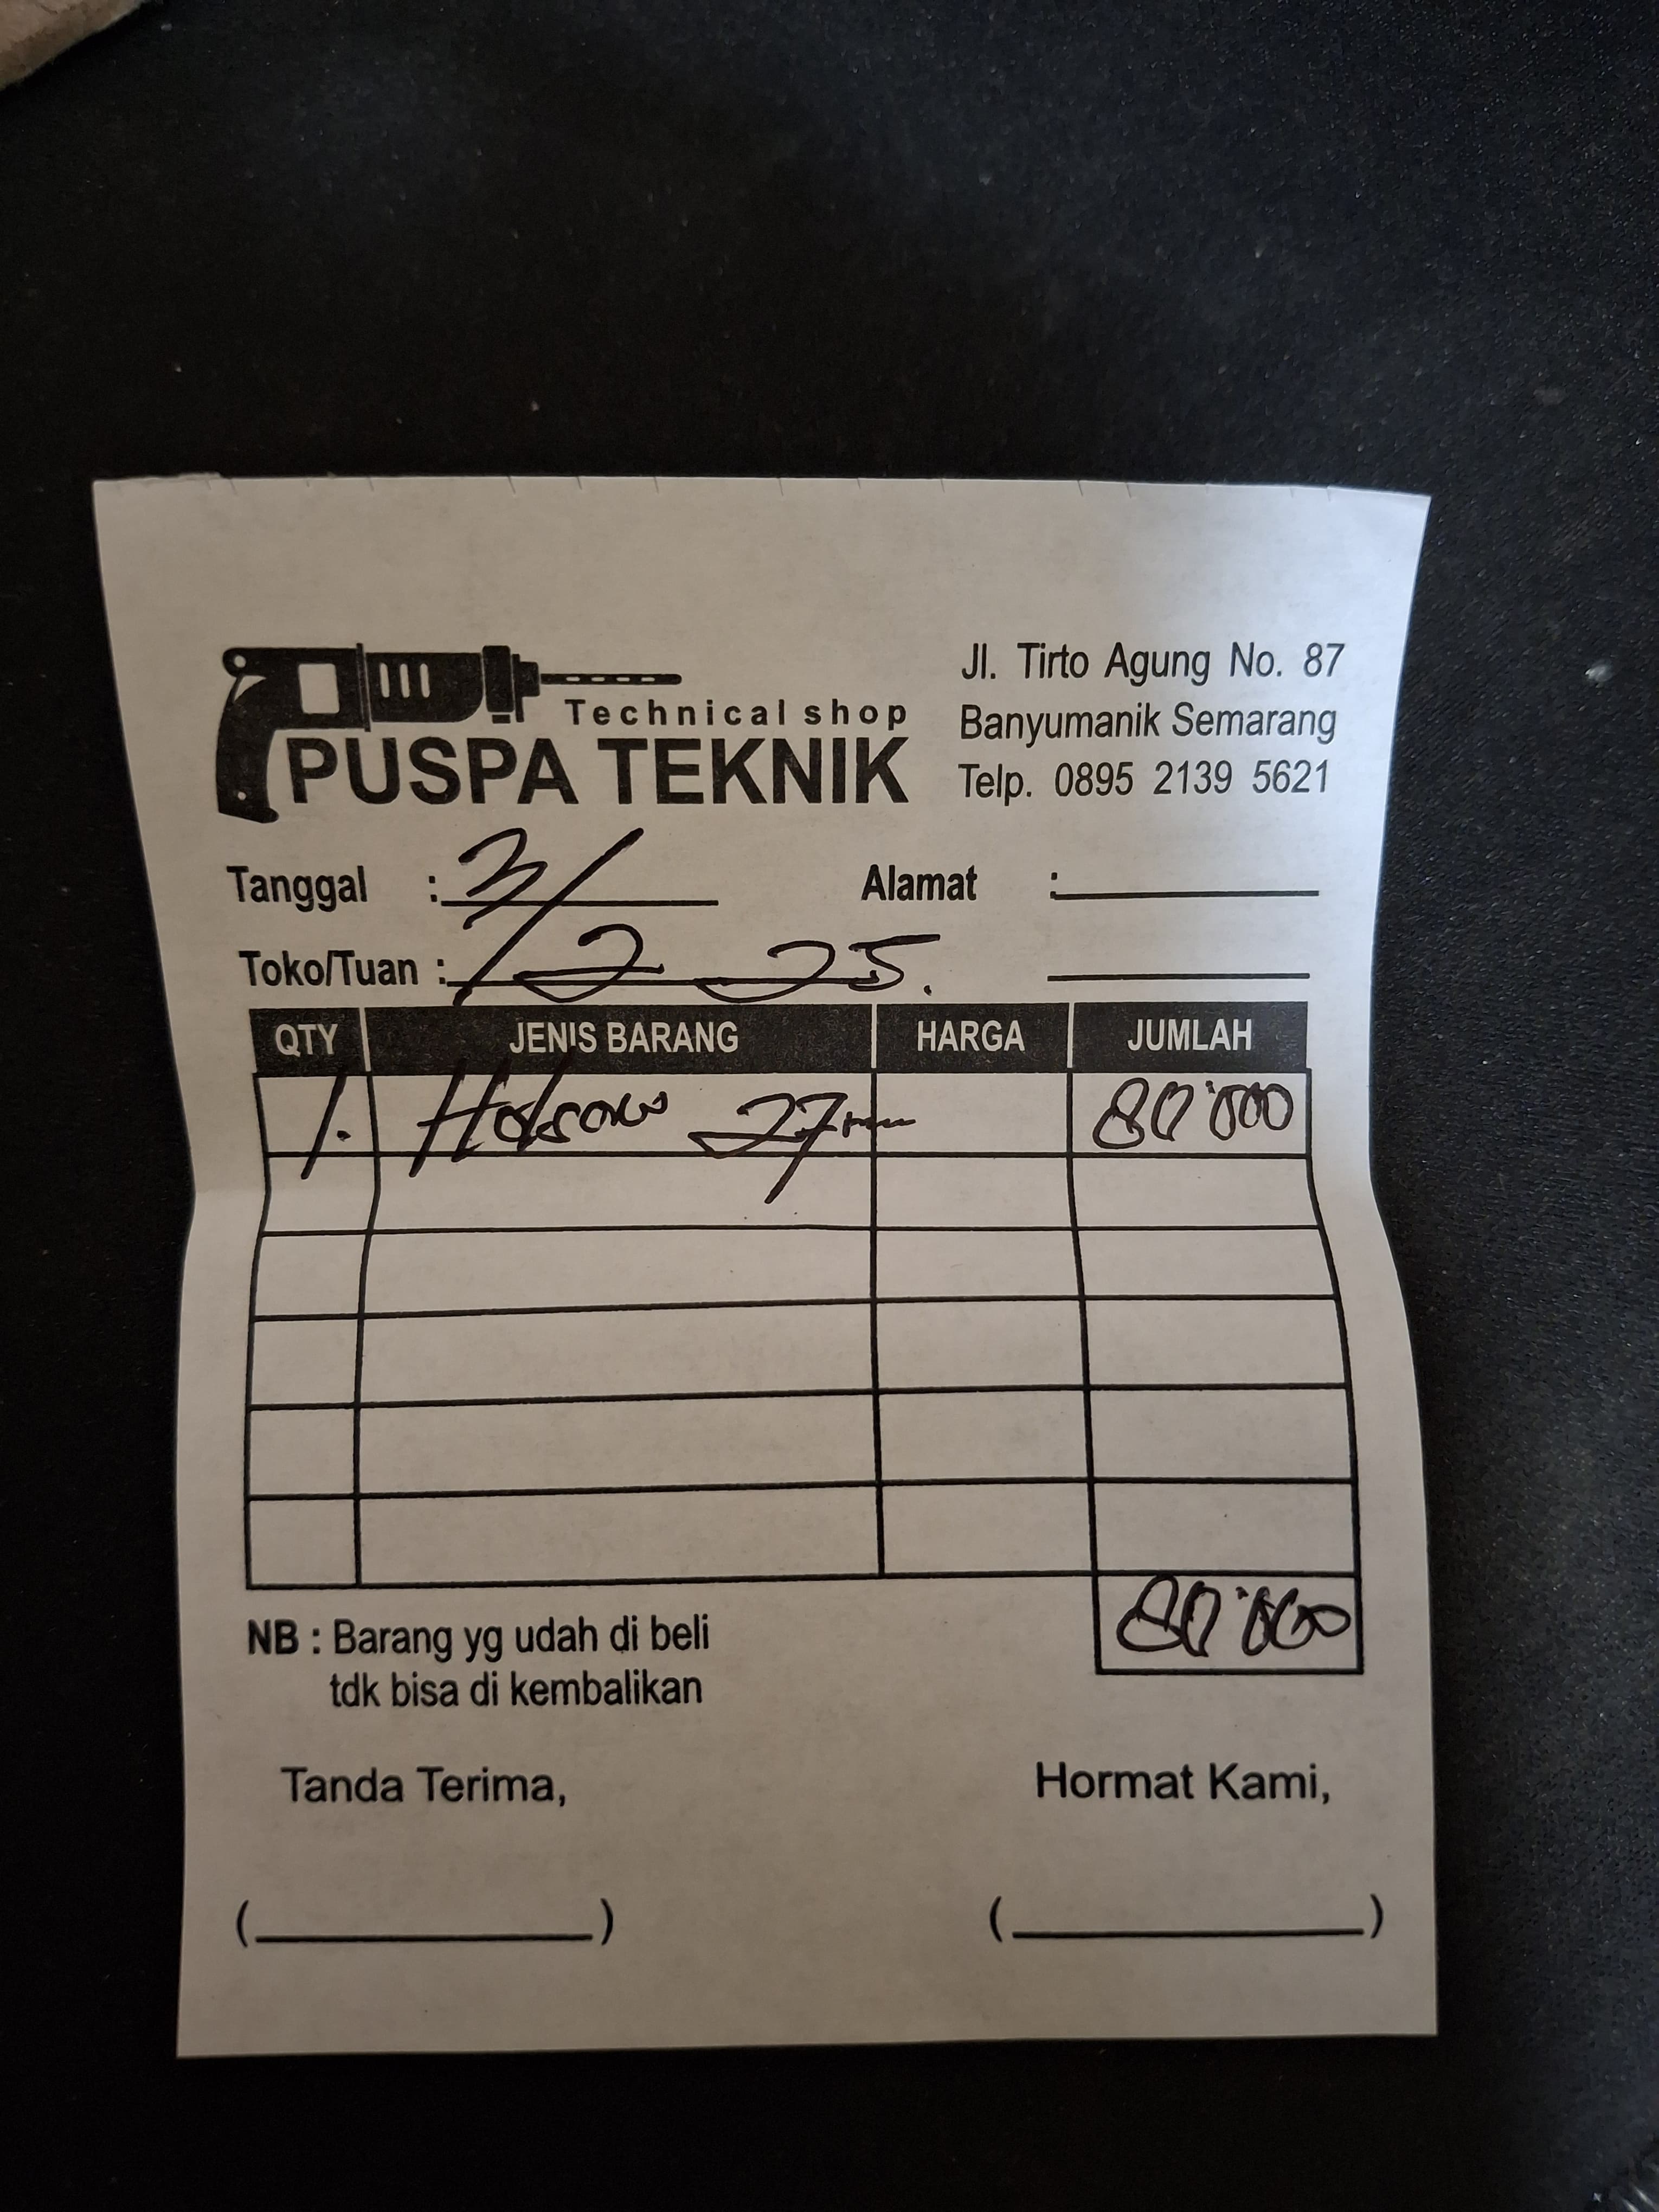 Technical shop
PUSPA TEKNIK
Jl. Tirto Agung No. 87
Banyumanik Semarang
Telp. 0895 2139 5621
Tanggal : 3/2 25.
Alamat :
Toko/Tuan :
QTY JENIS BARANG HARGA JUMLAH
1. Holsaw 27mm 80'000
80'000
NB : Barang yg udah di beli
tdk bisa di kembalikan
Tanda Terima, Hormat Kami,
( ) ( )